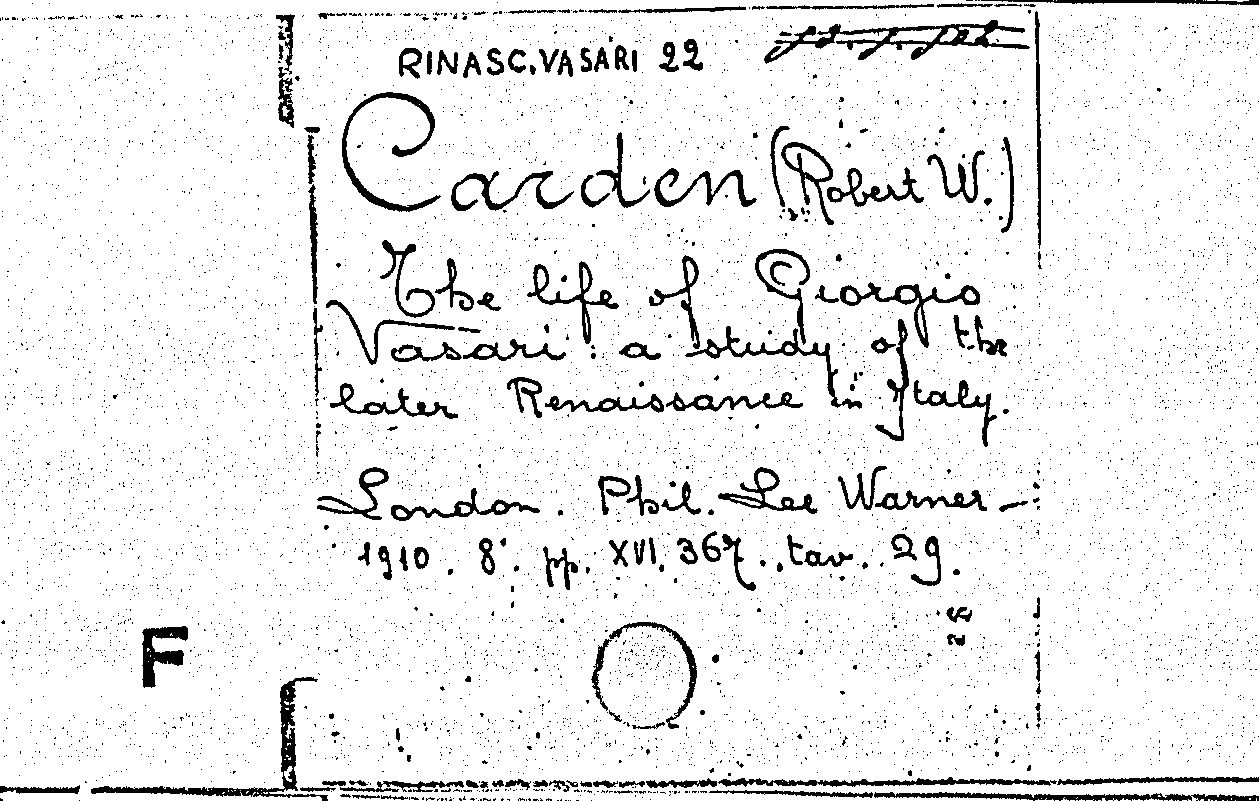 RINASC. VASARI 22
Carden (Robert W.)
The life of Giorgio
Vasari: a study of the
later Renaissance in Italy.
London. Phil. Lee Warner -
1910. 8°. pp. XVI, 367., tav. 29.
F